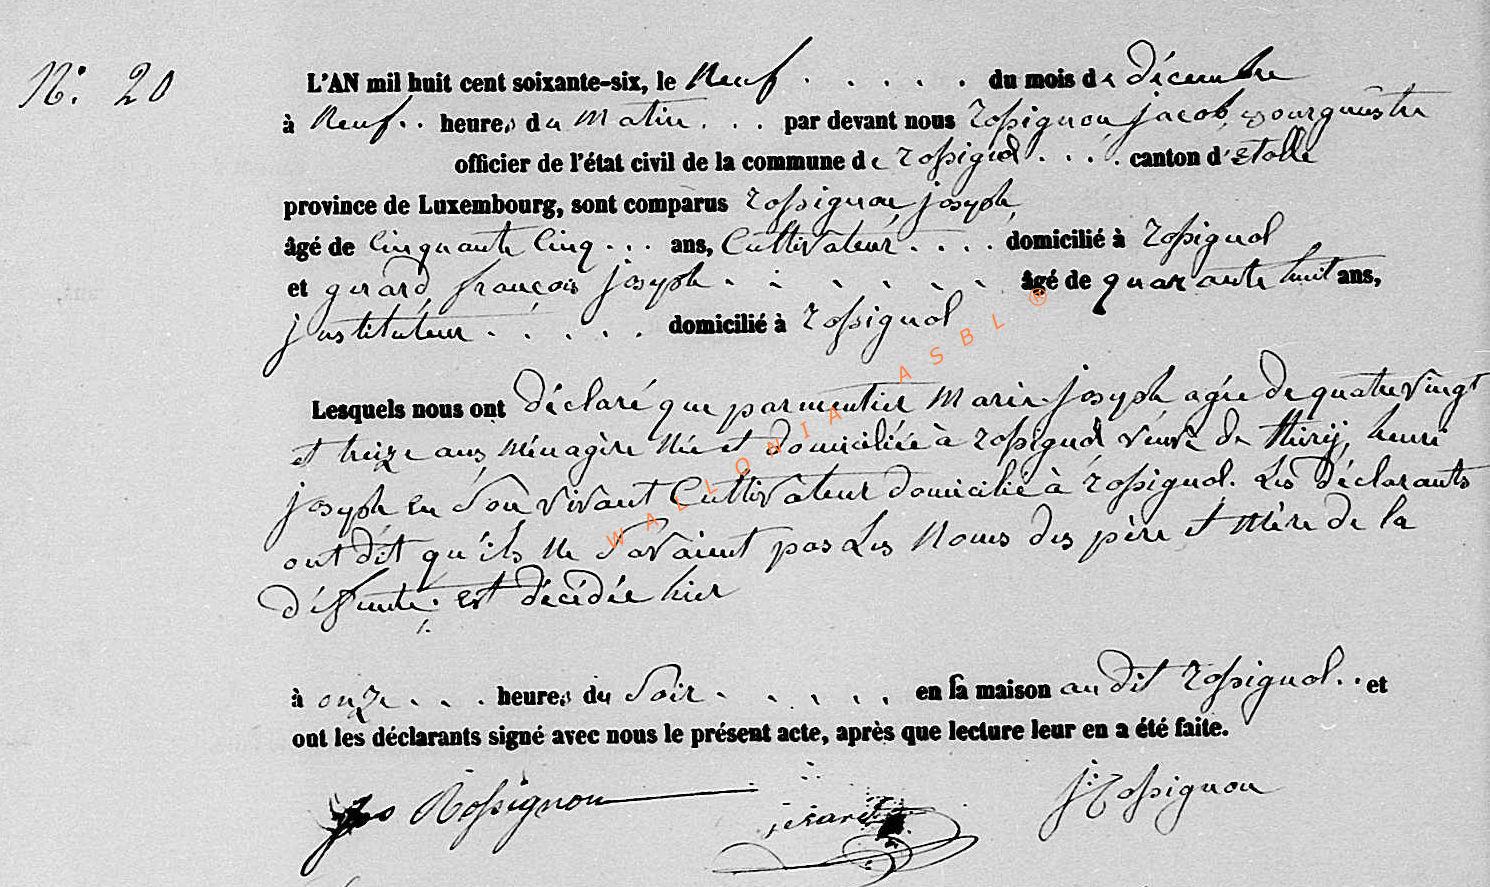 N.° 20
L'AN mil huit cent soixante-six, le neuf . . . . . du mois de décembre
à neuf . . heures du matin . . . par devant nous rossignon jacob, bourguestre
officier de l'état civil de la commune de rossignol . . . . canton d'Etalle
province de Luxembourg, sont comparus rossignon, joseph,
âgé de cinquante cinq . . . ans, Cultivateur . . . . domicilié à rossignol
et gerard, françois joseph . . . . . . . âgé de quarante huit ans,
justituteur . . . . . domicilié à rossignol
Lesquels nous ont déclaré que parmentier Marie-joseph agée de quatre vingt
et treize ans, Ménagère née et domiciliée à rossignol, veuve de thirÿ, henri
joseph en son vivant Cultivateur domicilié à rossignol. Les déclarants
ont dit qu'ils ne savaient pas Les Noms des père et Mère de la
défunte. est décédée hier
à onze . . . heures du soir . . . . . en sa maison au dit rossignol . . et
ont les déclarants signé avec nous le présent acte, après que lecture leur en a été faite.
Rossignon
jérard
j: rossignon
WALLONIA ASBL ®